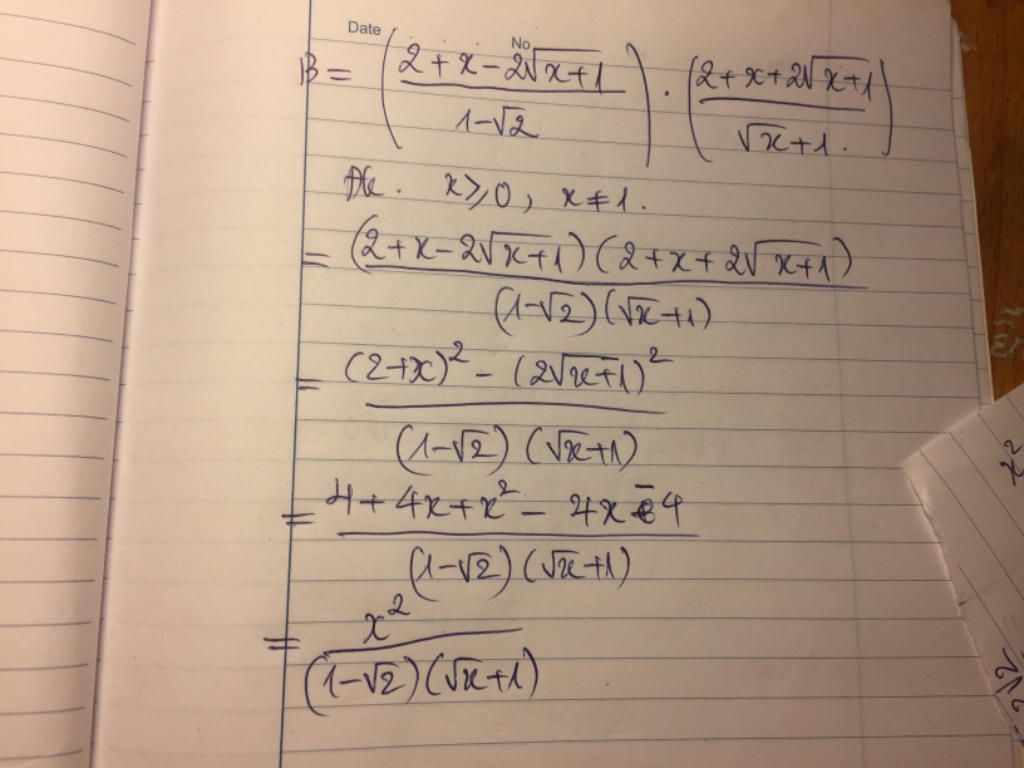 Date No
B = ( (2 + x − 2√(x+1)) / (1−√2) ) · ( (2 + x + 2√(x+1)) / (√x + 1) )
Đk. x ⩾ 0, x ≠ 1.
= (2 + x − 2√(x+1)) (2 + x + 2√(x+1)) / (1−√2) (√x+1)
= (2+x)² − (2√(x+1))² / (1−√2) (√x+1)
= 4 + 4x + x² − 4x − 4 / (1−√2) (√x+1)
= x² / (1−√2) (√x+1)
x²